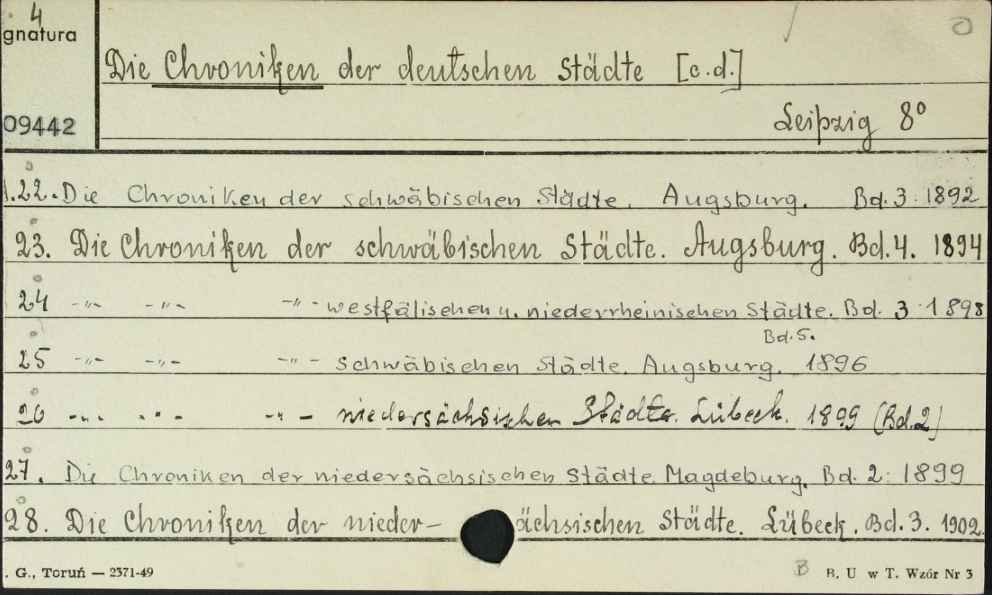 4
gnatura
Die Chroniken der deutschen Städte [c.d.]
09442
Leipzig 8°
.22. Die Chroniken der schwäbischen Städte. Augsburg. Bd. 3. 1892
23. Die Chroniken der schwäbischen Städte. Augsburg. Bd. 4. 1894
24 -"- -"- -"- westfälischen u. niederrheinischen Städte. Bd. 3. 1898
Bd. 5.
25 -"- -"- -"- schwäbischen Städte. Augsburg. 1896
26 -"- -"- -"- niedersächsischen Städte. Lübeck. 1899 (Bd. 2)
27. Die Chroniken der niedersächsischen Städte. Magdeburg. Bd. 2. 1899
28. Die Chroniken der nieder- ächsischen Städte. Lübeck. Bd. 3. 1902.
. G., Toruń — 2371-49
B
B. U w T. Wzór Nr 3